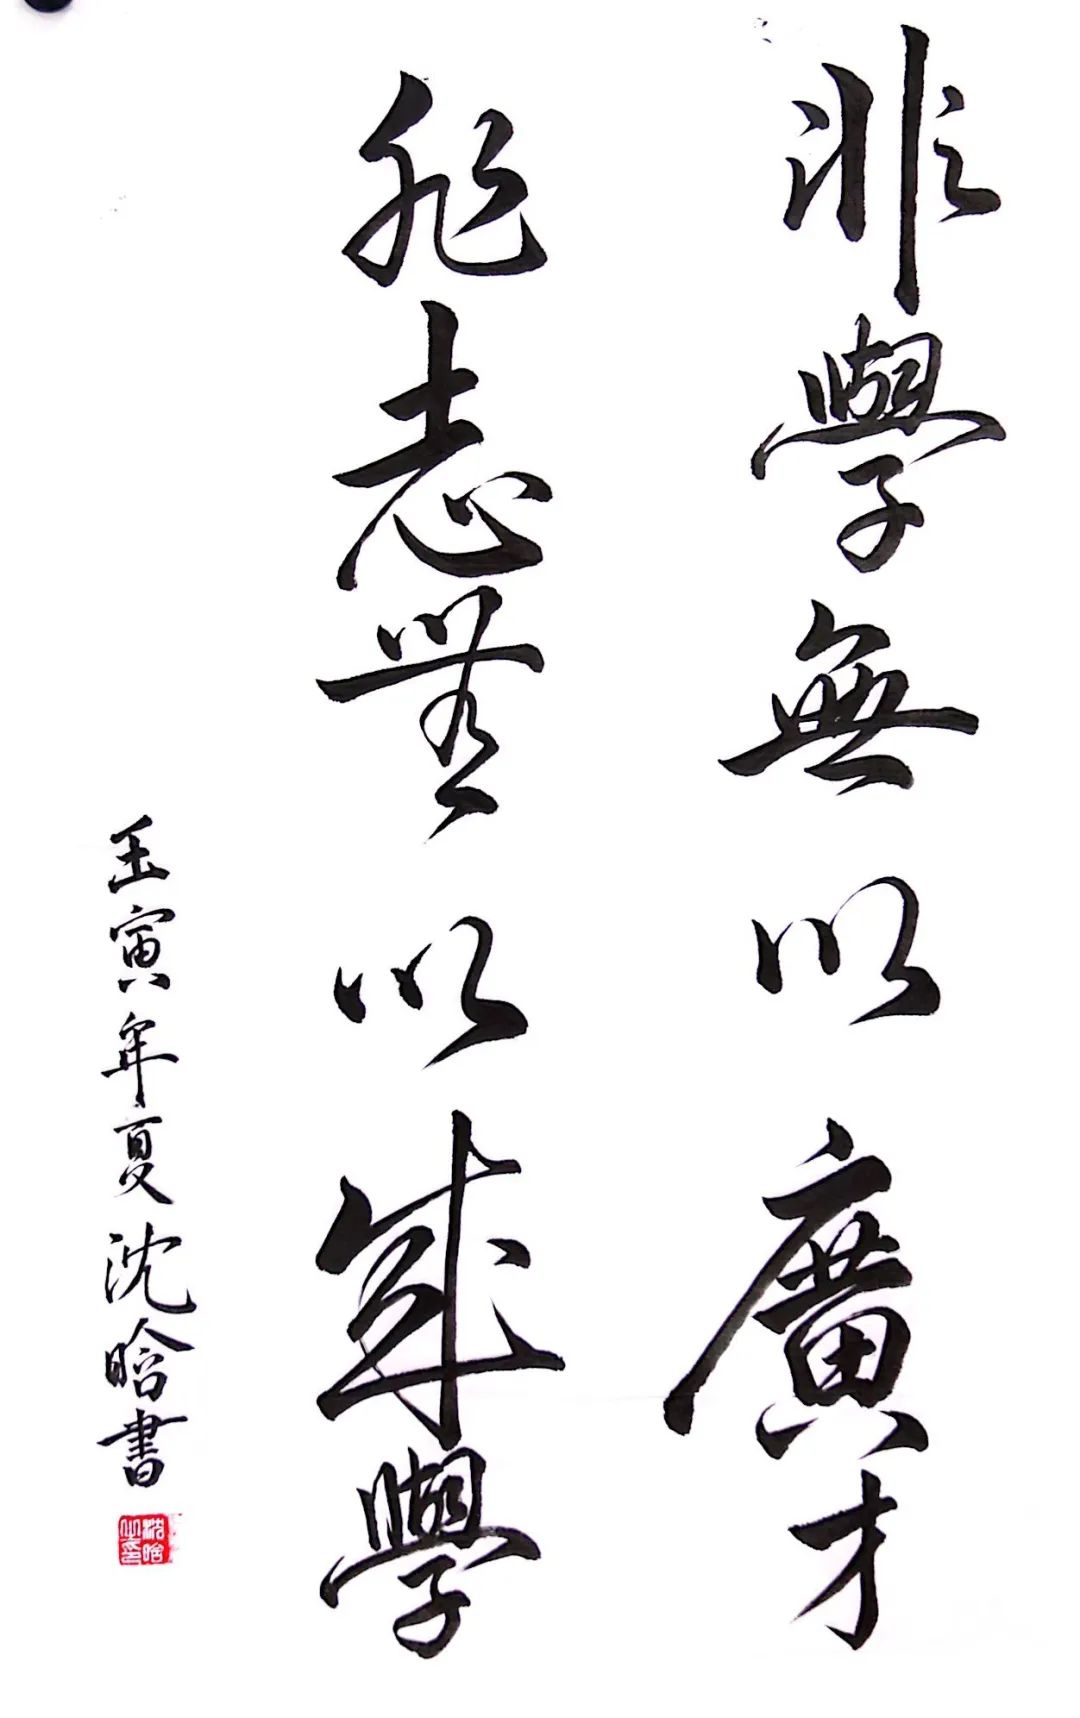 非學無以廣才
非志無以成學
壬寅年夏沈晗書
沈晗之印